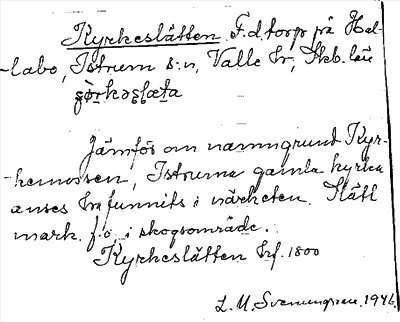 Kyrkeslätten F.d. torp på Hal-
-labo, Istrum s:n, Valle hr, Skb. län
Jämför om namngrund Kyr-
kemossen, Istrums gamla kyrka
anses ha funnits i närheten. Slätt
mark. f.ö. i skogsområde.
Kyrkeslätten hf. 1800
L. M. Svenungsson. 1946.